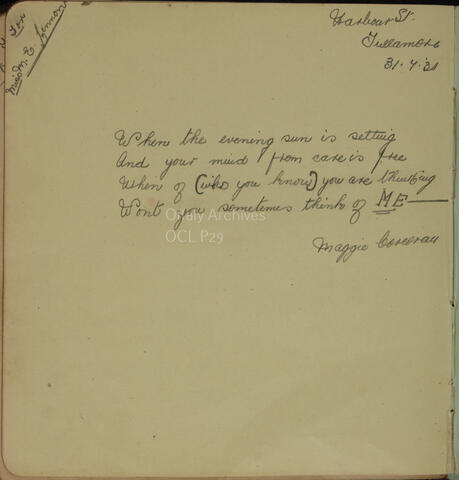 For
Miss M. E. Lennon
Harbour St.
Tullamore
31.7.31
When the evening sun is setting
And your mind from care is free
When of (who you know) you are thinking
Wont you sometimes think of ME
Maggie Corcoran
Offaly Archives
OCL P29